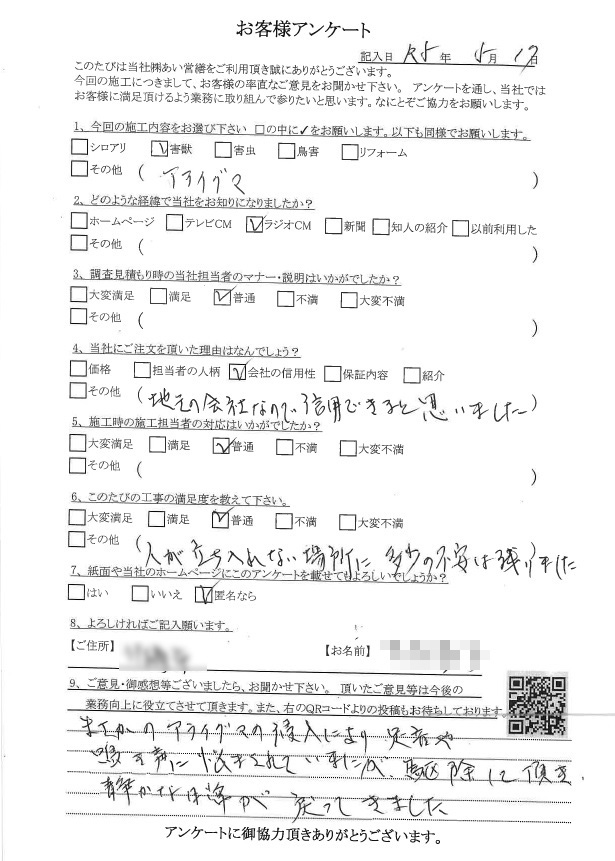 お客様アンケート
記入日 R5年 5月17日
このたびは当社㈱あい営繕をご利用頂き誠にありがとうございます。
今回の施工につきまして、お客様の率直なご意見をお聞かせ下さい。 アンケートを通し、当社では
お客様に満足頂けるよう業務に取り組んで参りたいと思います。なにとぞご協力をお願いします。
1、今回の施工内容をお選び下さい □の中に✓をお願いします。以下も同様でお願いします。
□シロアリ ☑害獣 □害虫 □鳥害 □リフォーム
□その他 ( アライグマ )
2、どのような経緯で当社をお知りになりましたか？
□ホームページ □テレビCM ☑ラジオCM □新聞 □知人の紹介 □以前利用した
□その他 ( )
3、調査見積もり時の当社担当者のマナー・説明はいかがでしたか？
□大変満足 □満足 ☑普通 □不満 □大変不満
□その他 ( )
4、当社にご注文を頂いた理由はなんでしょう？
□価格 □担当者の人柄 ☑会社の信用性 □保証内容 □紹介
□その他 (地元の会社なので信用できると思いました)
5、施工時の施工担当者の対応はいかがでしたか？
□大変満足 □満足 ☑普通 □不満 □大変不満
□その他 ( )
6、このたびの工事の満足度を教えて下さい。
□大変満足 □満足 ☑普通 □不満 □大変不満
□その他 (人が立ち入れない場所に多少の不安は残りました
7、紙面や当社のホームページにこのアンケートを載せてもよろしいでしょうか？
□はい □いいえ ☑匿名なら
8、よろしければご記入願います。
【ご住所】 【お名前】
9、ご意見・御感想等ございましたら、お聞かせ下さい。 頂いたご意見等は今後の
業務向上に役立てさせて頂きます。また、右のQRコードよりの投稿もお待ちしております。
まさかのアライグマの侵入により 足音や
鳴き声に悩まされていましたが、駆除して頂き、
静かな日々が戻ってきました
アンケートに御協力頂きありがとうございます。